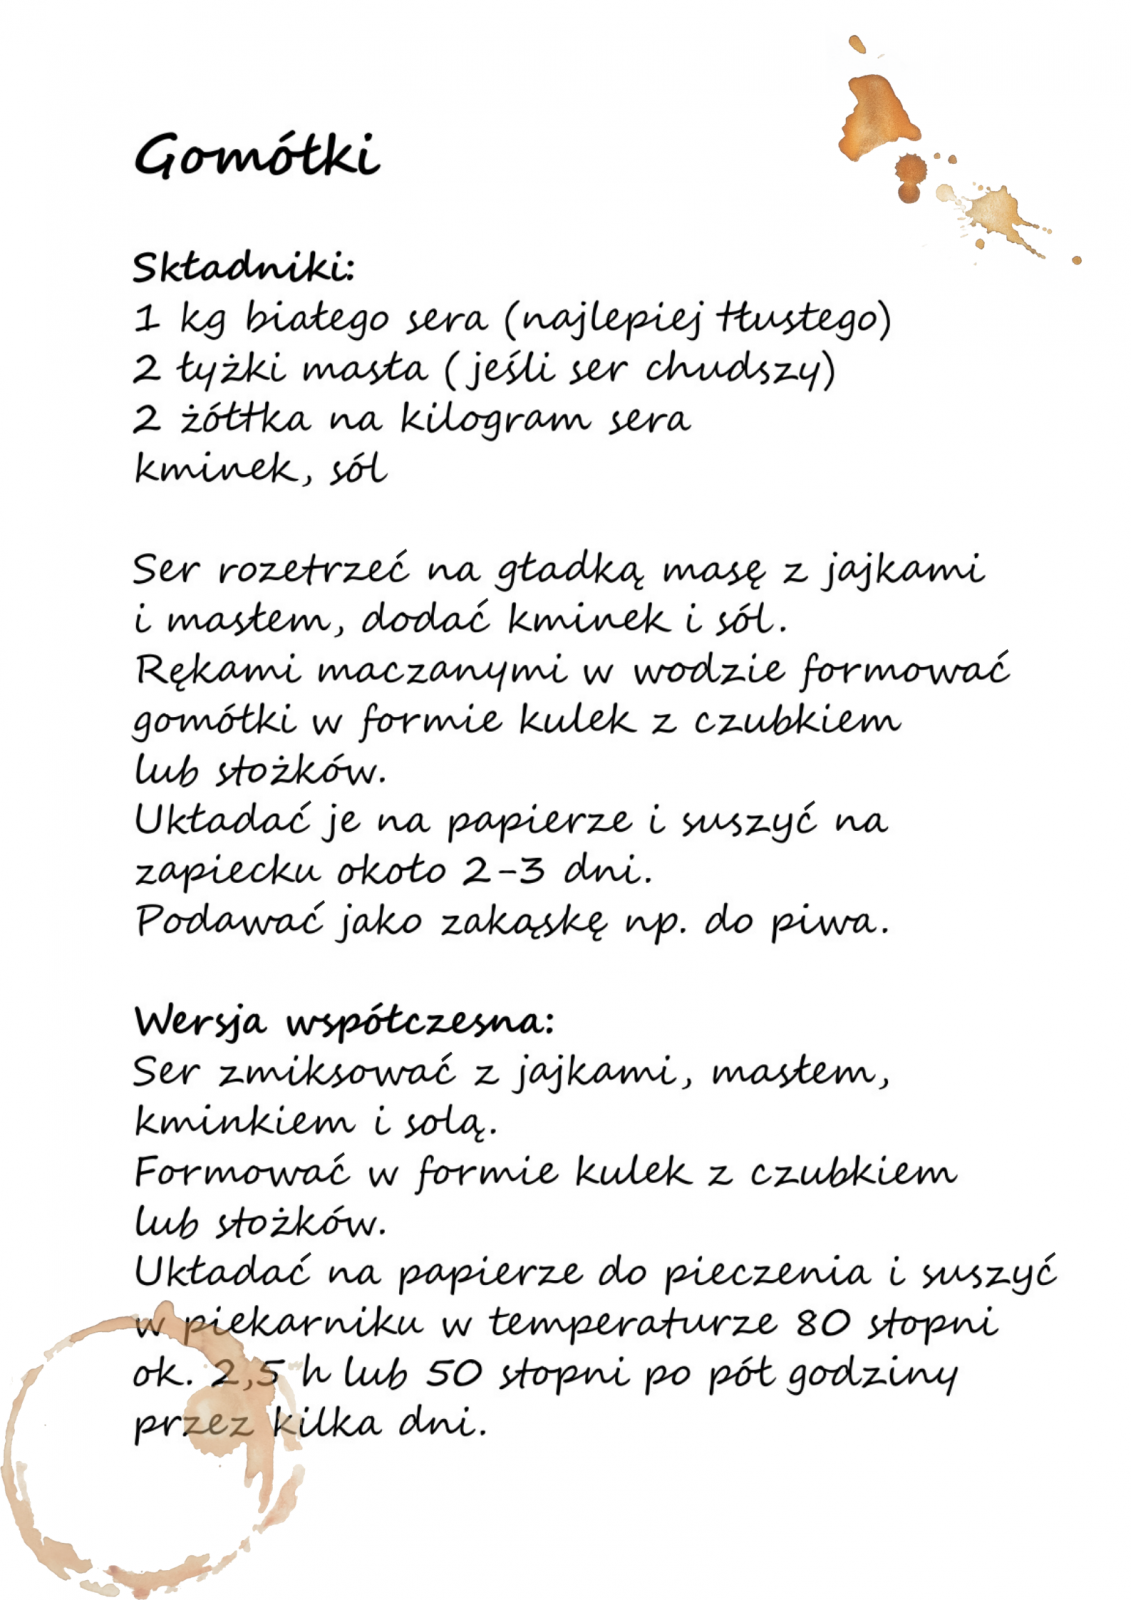 Gomółki
Składniki:
1 kg białego sera (najlepiej tłustego)
2 łyżki masła ( jeśli ser chudszy)
2 żółtka na kilogram sera
kminek, sól
Ser rozetrzeć na gładką masę z jajkami
i masłem, dodać kminek i sól.
Rękami maczanymi w wodzie formować
gomółki w formie kulek z czubkiem
lub stożków.
Układać je na papierze i suszyć na
zapiecku około 2-3 dni.
Podawać jako zakąskę np. do piwa.
Wersja współczesna:
Ser zmiksować z jajkami, masłem,
kminkiem i solą.
Formować w formie kulek z czubkiem
lub stożków.
Układać na papierze do pieczenia i suszyć
w piekarniku w temperaturze 80 stopni
ok. 2,5 h lub 50 stopni po pół godziny
przez kilka dni.